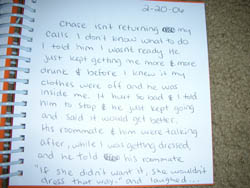 2-20-06
Chase isn't returning my
calls. I don't know what to do
I told him I wasnt ready. He
just kept getting me more & more
drunk & before I knew it my
clothes were off and he was
inside me. It hurt so bad & I told
him to stop & he just kept going
and said it would get better.
His roommate & him were talking
after, while I was getting dressed,
and he told his roommate,
"If she didn't want it, she wouldn't
dress that way" and laughed...